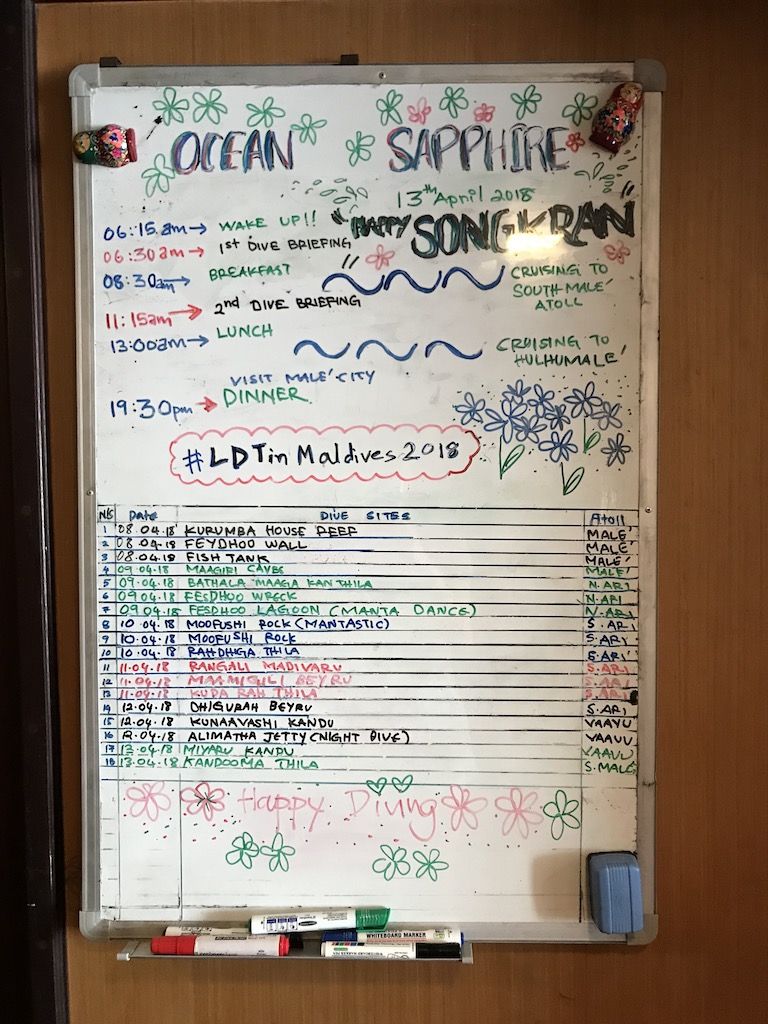 OCEAN SAPPHIRE
13th April 2018
"HAPPY SONGKRAN"
06:15am → WAKE UP!!
06:30am → 1st DIVE BRIEFING
08:30am → BREAKFAST
CRUISING TO SOUTH MALE' ATOLL
11:15am → 2nd DIVE BRIEFING
13:00am → LUNCH
CRUISING TO HULHUMALE'
VISIT MALE' CITY
19:30pm → DINNER
#LDTinMaldives2018
N/S Date DIVE SITES Atoll
1 08.04.18 KURUMBA HOUSE REEF MALE'
2 08.04.18 FEYDHOO WALL MALE'
3 08.04.18 FISH TANK MALE'
4 09.04.18 MAAGIRI CAVES MALE'
5 09.04.18 BATHALA MAAGA KAN THILA N.ARI
6 09.04.18 FESDHOO WRECK N.ARI
7 09.04.18 FESDHOO LAGOON (MANTA DANCE) N.ARI
8 10.04.18 MOOFUSHI ROCK (MANTASTIC) S.ARI
9 10.04.18 MOOFUSHI ROCK S.ARI
10 10.04.18 RAHDHIGA THILA S.ARI
11 11.04.18 RANGALI MADIVARU S.ARI
12 11.04.18 MAAMIGULI BEYRU S.ARI
13 11.04.18 KUDA RAH THILA S.ARI
14 12.04.18 DHIGURAH BEYRU S.ARI
15 12.04.18 KUNAAVASHI KANDU VAAVU
16 12.04.18 ALIMATHA JETTY (NIGHT DIVE) VAAVU
17 13.04.18 MIYARU KANDU VAAVU
18 13.04.18 KANDOOMA THILA S.MALE
Happy Diving
WHITEBOARD MARKER